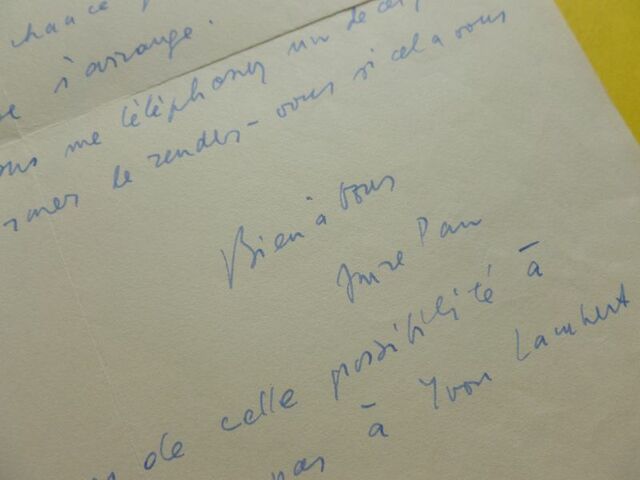 chance
s'arrange.
me téléphoner un de ces
le rendez-vous si cela vous
Bien à vous
Imre Pan
de cette possibilité à
pas à Yvon Lambert